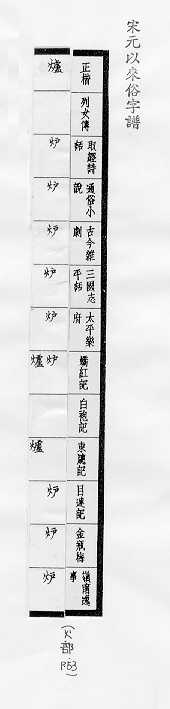 宋元以來俗字譜
正楷
爐
列女傳
取經詩話
炉
通俗小說
炉
古今雜劇
炉
三國志平話
炉
太平樂府
炉
嬌紅記
炉
白袍記
東牕記
目連記
炉
金瓶梅
炉
嶺南逸事
炉
(火部 P53)